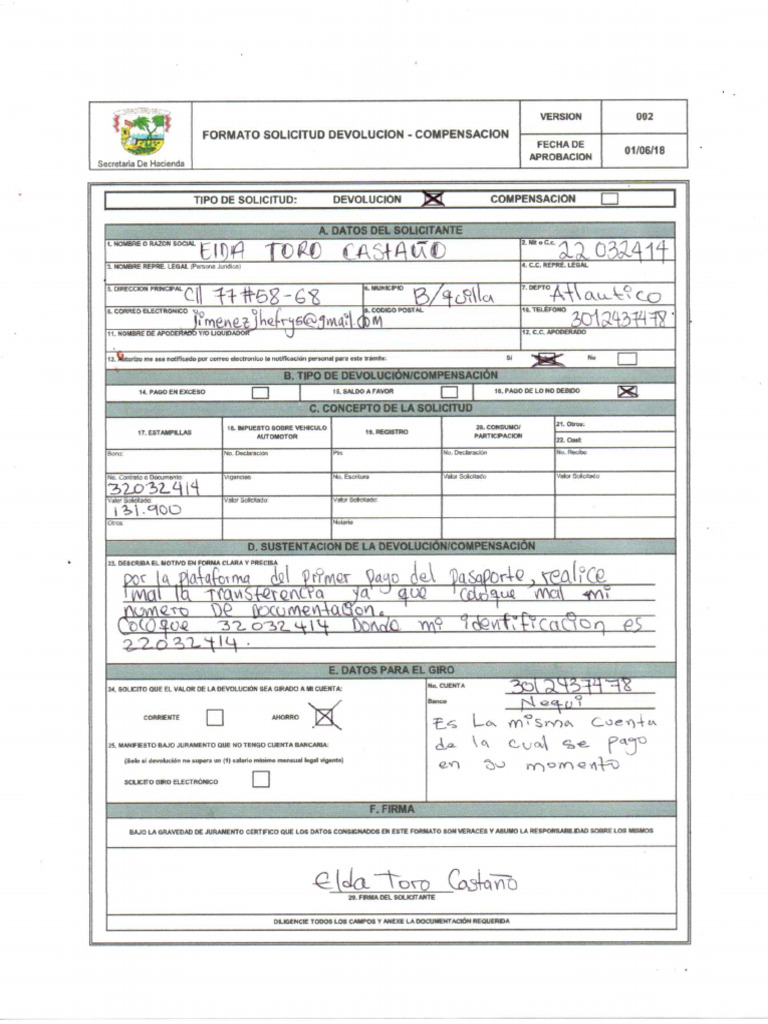 Secretaria De Hacienda
FORMATO SOLICITUD DEVOLUCION - COMPENSACION
VERSION 002
FECHA DE APROBACION 01/06/18
TIPO DE SOLICITUD: DEVOLUCIÓN X COMPENSACIÓN
A. DATOS DEL SOLICITANTE
1. NOMBRE O RAZON SOCIAL ElDA TORO CASTAÑO 2. Nit o C.c. 22 032414
3. NOMBRE REPRE. LEGAL (Persona Juridica) 4. C.C. REPRE. LEGAL
5. DIRECCION PRINCIPAL Cll 77#58-68 6. MUNICIPIO B/quilla 7. DEPTO Atlautico
8. CORREO ELECTRONICO jimenezjhefrys@gmail.com 9. CODIGO POSTAL 10. TELÉFONO 3012437478
11. NOMBRE DE APODERADO Y/O LIQUIDADOR 12. C.C. APODERADO
13. Autorizo me sea notificado por correo electronico la notificación personal para este trámite: Si X No
B. TIPO DE DEVOLUCIÓN/COMPENSACIÓN
14. PAGO EN EXCESO 15. SALDO A FAVOR 16. PAGO DE LO NO DEBIDO X
C. CONCEPTO DE LA SOLICITUD
17. ESTAMPILLAS 18. IMPUESTO SOBRE VEHICULO AUTOMOTOR 19. REGISTRO 20. CONSUMO/ PARTICIPACION 21. Otros:
22. Cual:
Bono: No. Declaración Pin No. Declaración No. Recibo
No. Contrato o Documento: Vigencias No. Escritura Valor Solicitado Valor Solicitado
32032414
Valor Solicitado: Valor Solicitado: Valor Solicitado:
131.900
Otros Notaria
D. SUSTENTACION DE LA DEVOLUCIÓN/COMPENSACIÓN
23. DESCRIBA EL MOTIVO EN FORMA CLARA Y PRECISA
por la plataforma del primer pago del pasaporte, realice
mal la transferencia ya que coloque mal mi
numero DE Documentacion.
Coloque 32032414 Donde mi identificacion es
22032414.
E. DATOS PARA EL GIRO
24. SOLICITO QUE EL VALOR DE LA DEVOLUCIÓN SEA GIRADO A MI CUENTA: No. CUENTA 3012437478
Banco Nequi
CORRIENTE AHORRO X
Es La misma cuenta
de la cual se pago
en su momento
25. MANIFIESTO BAJO JURAMENTO QUE NO TENGO CUENTA BANCARIA:
(Solo si devolución no supera un (1) salario minimo mensual legal vigente)
SOLICITO GIRO ELECTRÓNICO
F. FIRMA
BAJO LA GRAVEDAD DE JURAMENTO CERTIFICO QUE LOS DATOS CONSIGNADOS EN ESTE FORMATO SON VERACES Y ASUMO LA RESPONSABILIDAD SOBRE LOS MISMOS
Elda Toro Castaño
29. FIRMA DEL SOLICITANTE
DILIGENCIE TODOS LOS CAMPOS Y ANEXE LA DOCUMENTACIÓN REQUERIDA